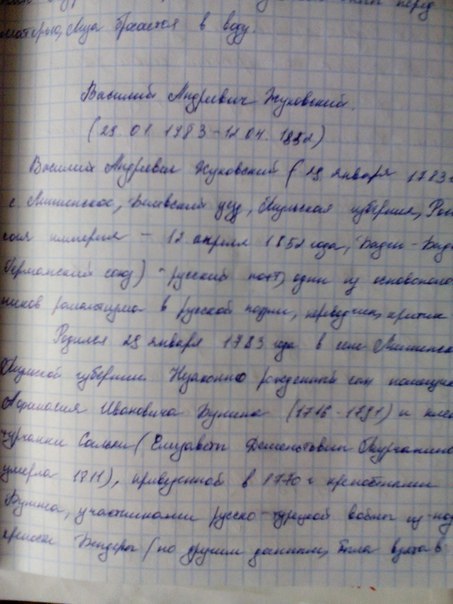 матерью, Лиза бросается в воду.
Василий Андревич Жуковский.
(29. 01. 1783 - 12. 04. 1852)
Василий Андревич Жуковский (29 января 1783 г
с. Мишенское, Белевский уезд, Тульская губерния, Рос
ская империя - 12 апреля 1852 года, Баден-Бад
Германский союз) - русский поэт, один из основополо
ников романтизма в русской поэзии, переводчик, критик
Родился 29 января 1783 года в селе Мишенско
Тульской губернии. Незаконно рожденный сын помещик
Афанасия Ивановича Бунина (1716 - 1791) и плен
турчанки Сальхи (Елизавета Дементьевна Турчанино
умерла 1811), привезенной в 1770 г крепостными
Бунина, участниками русско-турецкой войны из-под
крепости Бендеры (по другим данным, была взята в